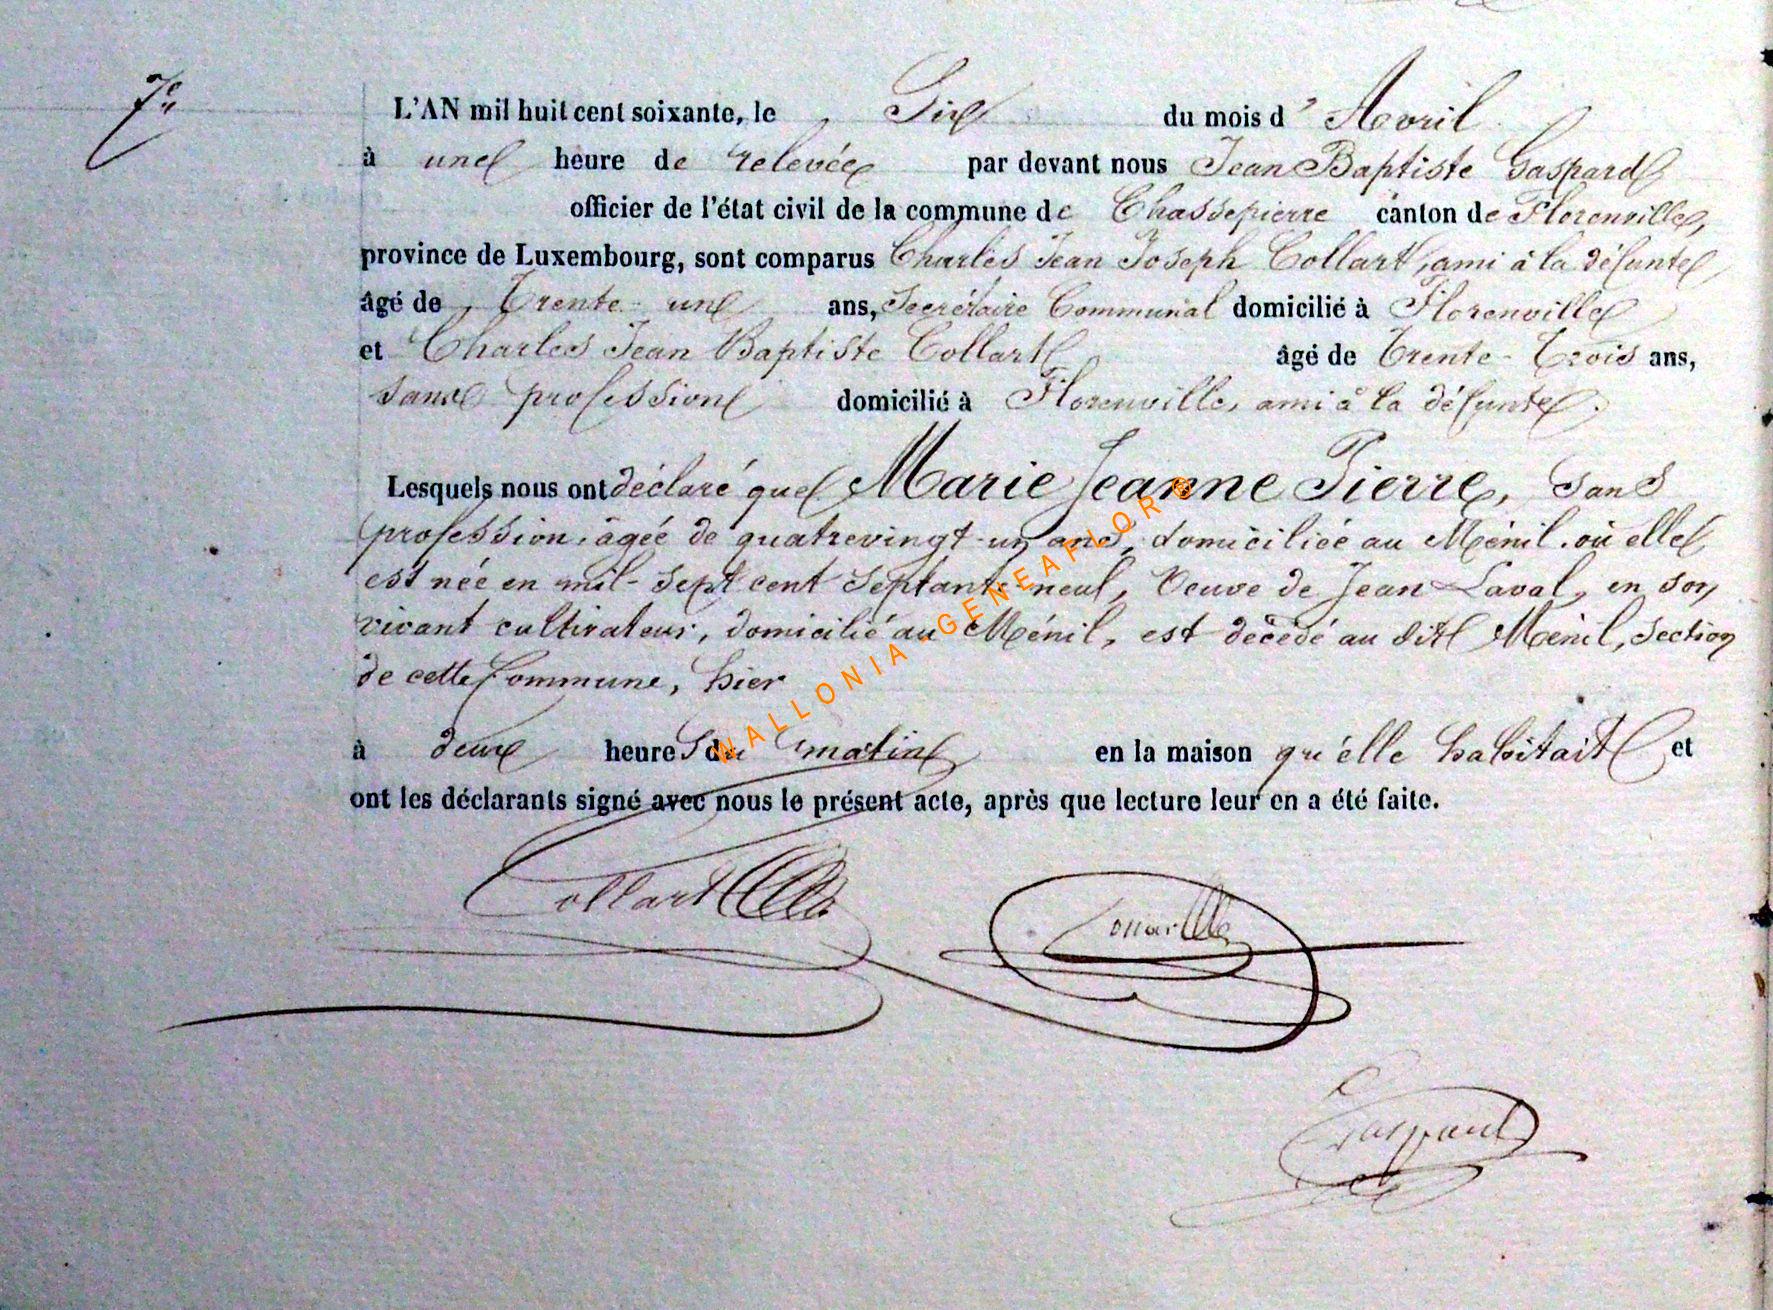 7e
L'AN mil huit cent soixante, le Six du mois d' Avril
à une heure de relevée par devant nous Jean Baptiste Gaspard
officier de l'état civil de la commune de Chassepierre canton de Florenville,
province de Luxembourg, sont comparus Charles Jean Joseph Collart, ami à la défunte
âgé de Trente-une ans, Secrétaire Communal domicilié à Florenville
et Charles Jean Baptiste Collart âgé de Trente-Trois ans,
sans profession domicilié à Florenville, ami à la défunte,
Lesquels nous ont déclaré que Marie Jeanne Pierre, sans
profession, âgée de quatrevingt-un ans, domiciliée au Ménil, où elle
est née en mil-sept cent septante-neuf, Veuve de Jean Laval, en son
vivant cultivateur, domicilié au Ménil, est décédé au dit Ménil, section
de cette Commune, hier
à deux heures du matin en la maison qu'elle habitait et
ont les déclarants signé avec nous le présent acte, après que lecture leur en a été faite.
WALLONIA-GENEAFLOR®
Collart
Gaspard